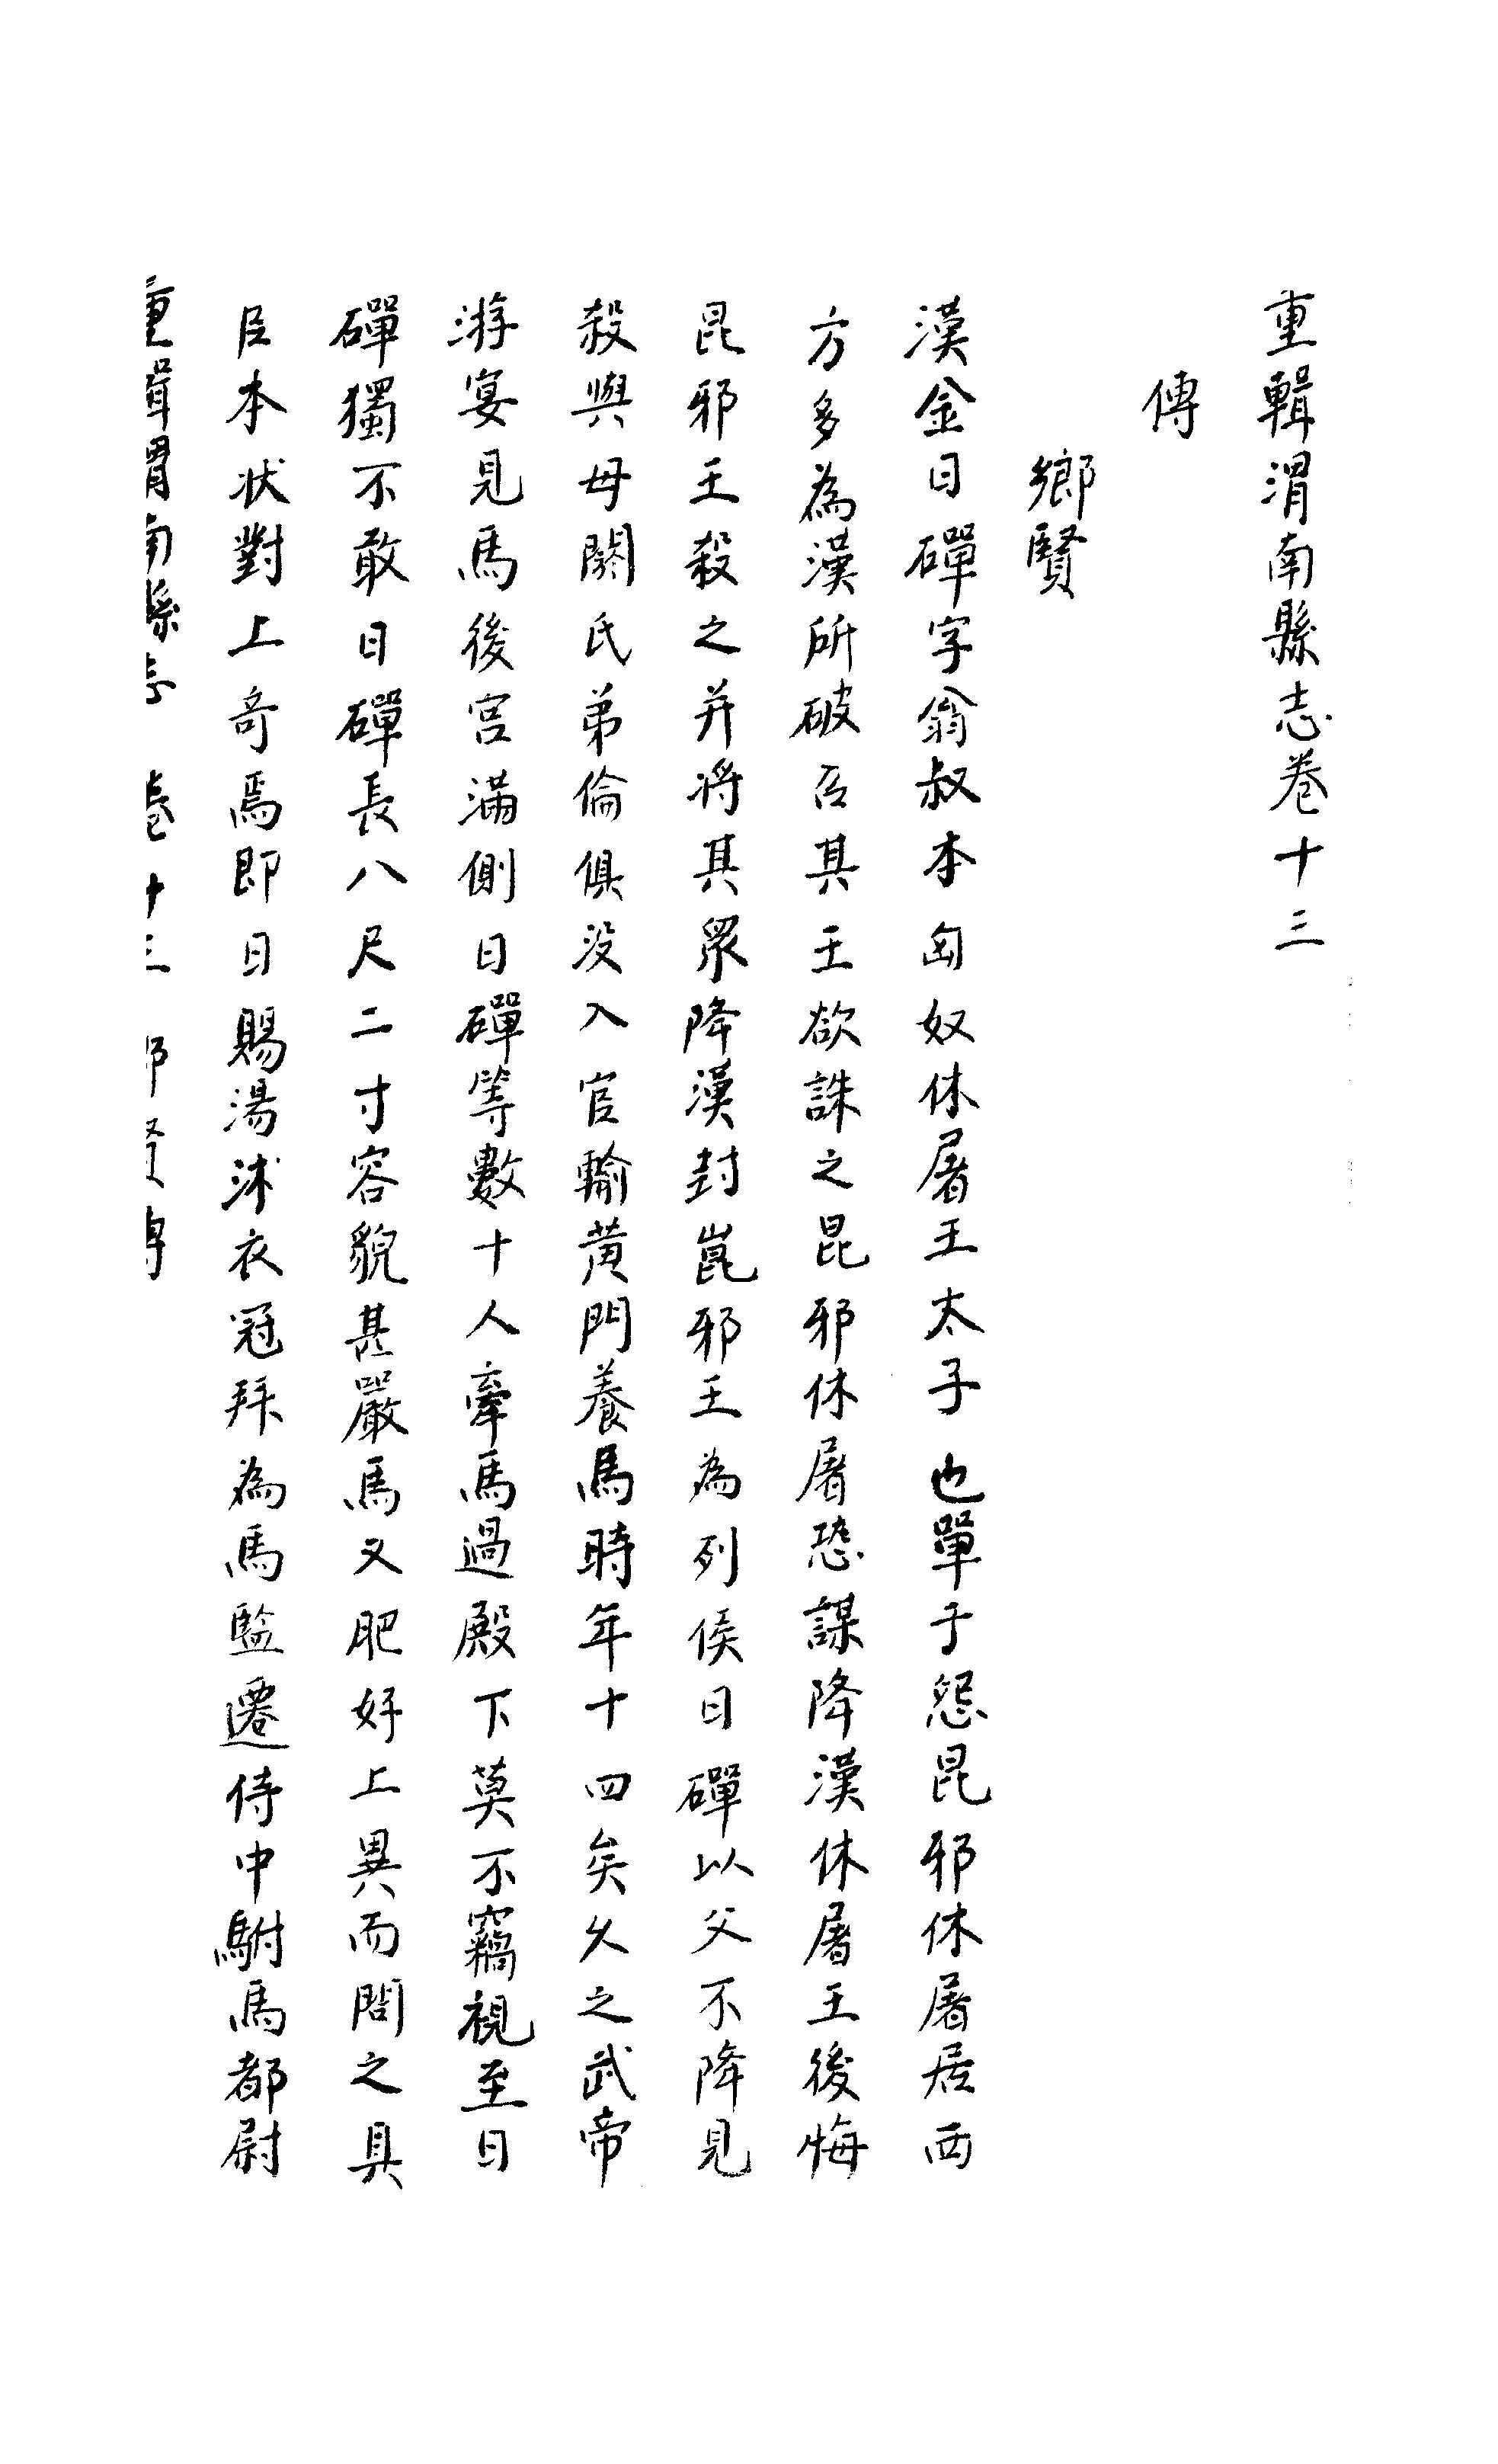 重輯渭南縣志卷十三
傳
鄉賢
漢金日磾字翁叔本匈奴休屠王太子也單于怨昆邪休屠居西
方多為漢所破召其王欲誅之昆邪休屠恐謀降漢休屠王後悔
昆邪王殺之并將其眾降漢封崑邪王為列侯日磾以父不降見
殺與母閼氏弟倫俱沒入官輸黃門養馬時年十四矣久之武帝
游宴見馬後宮滿側日磾等數十人牽馬過殿下莫不竊視至日
磾獨不敢日磾長八尺二寸容貌甚嚴馬又肥好上異而問之具
臣本狀對上奇焉即日賜湯沐衣冠拜為馬監遷侍中駙馬都尉
重輯渭南縣志 卷十三 鄉賢傳